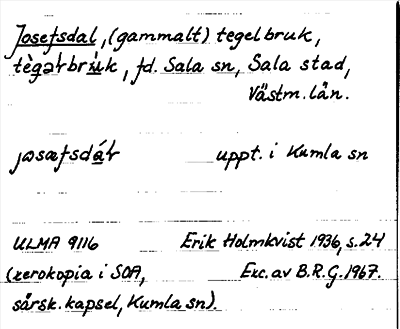 Josefsdal, (gammalt) tegelbruk,
tègəɫbrùk, fd. Sala sn, Sala stad,
Västm. län.
josæfsdáɫ uppt. i Kumla sn
ULMA 9116 Erik Holmkvist 1936, s. 24
(xerokopia i SOA, Exc. av B.R.G. 1967.
särsk. kapsel, Kumla sn).